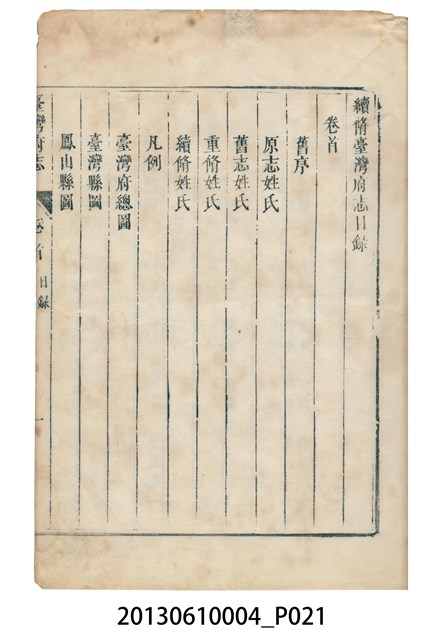 續脩臺灣府志目錄
卷首
舊序
原志姓氏
舊志姓氏
重脩姓氏
續脩姓氏
凡例
臺灣府總圖
臺灣縣圖
鳳山縣圖
臺灣府志 卷首 目錄 一
20130610004_P021